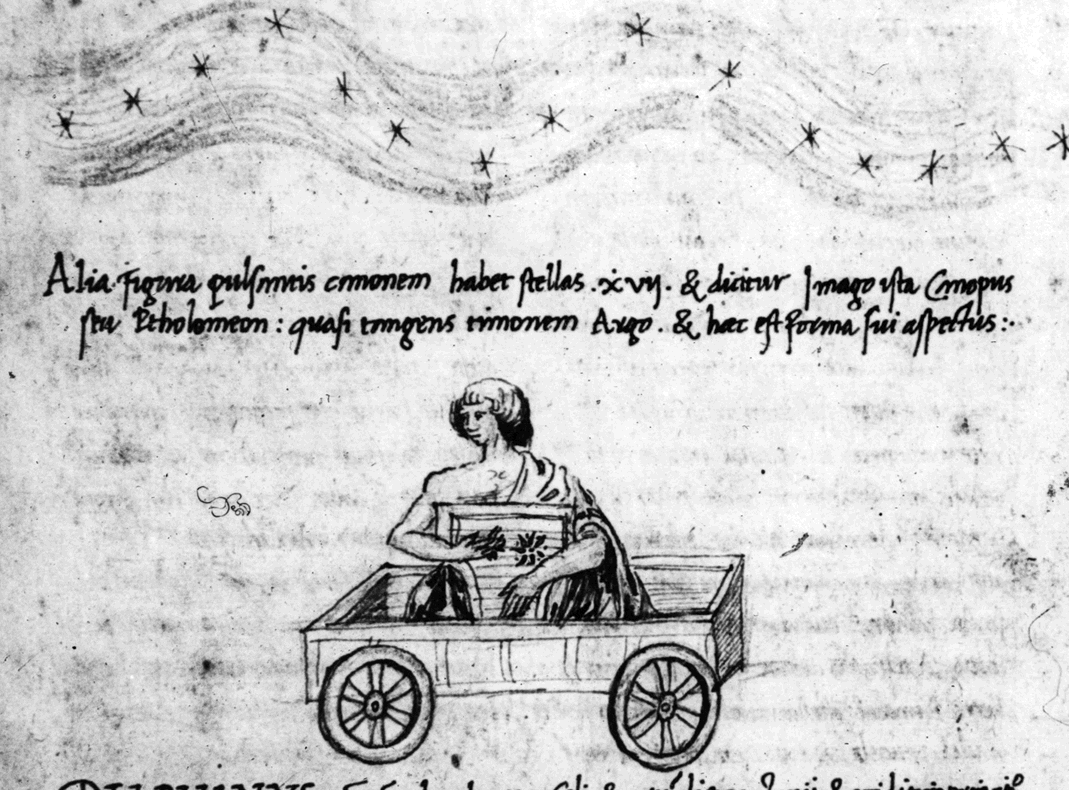 Alia figura pulsantis canonem habet stellas .xvij. & dicitur Imago ista Canopus
seu Ptholomeon : quasi tangens timonem Argo . & hæc est forma sui aspectus :·